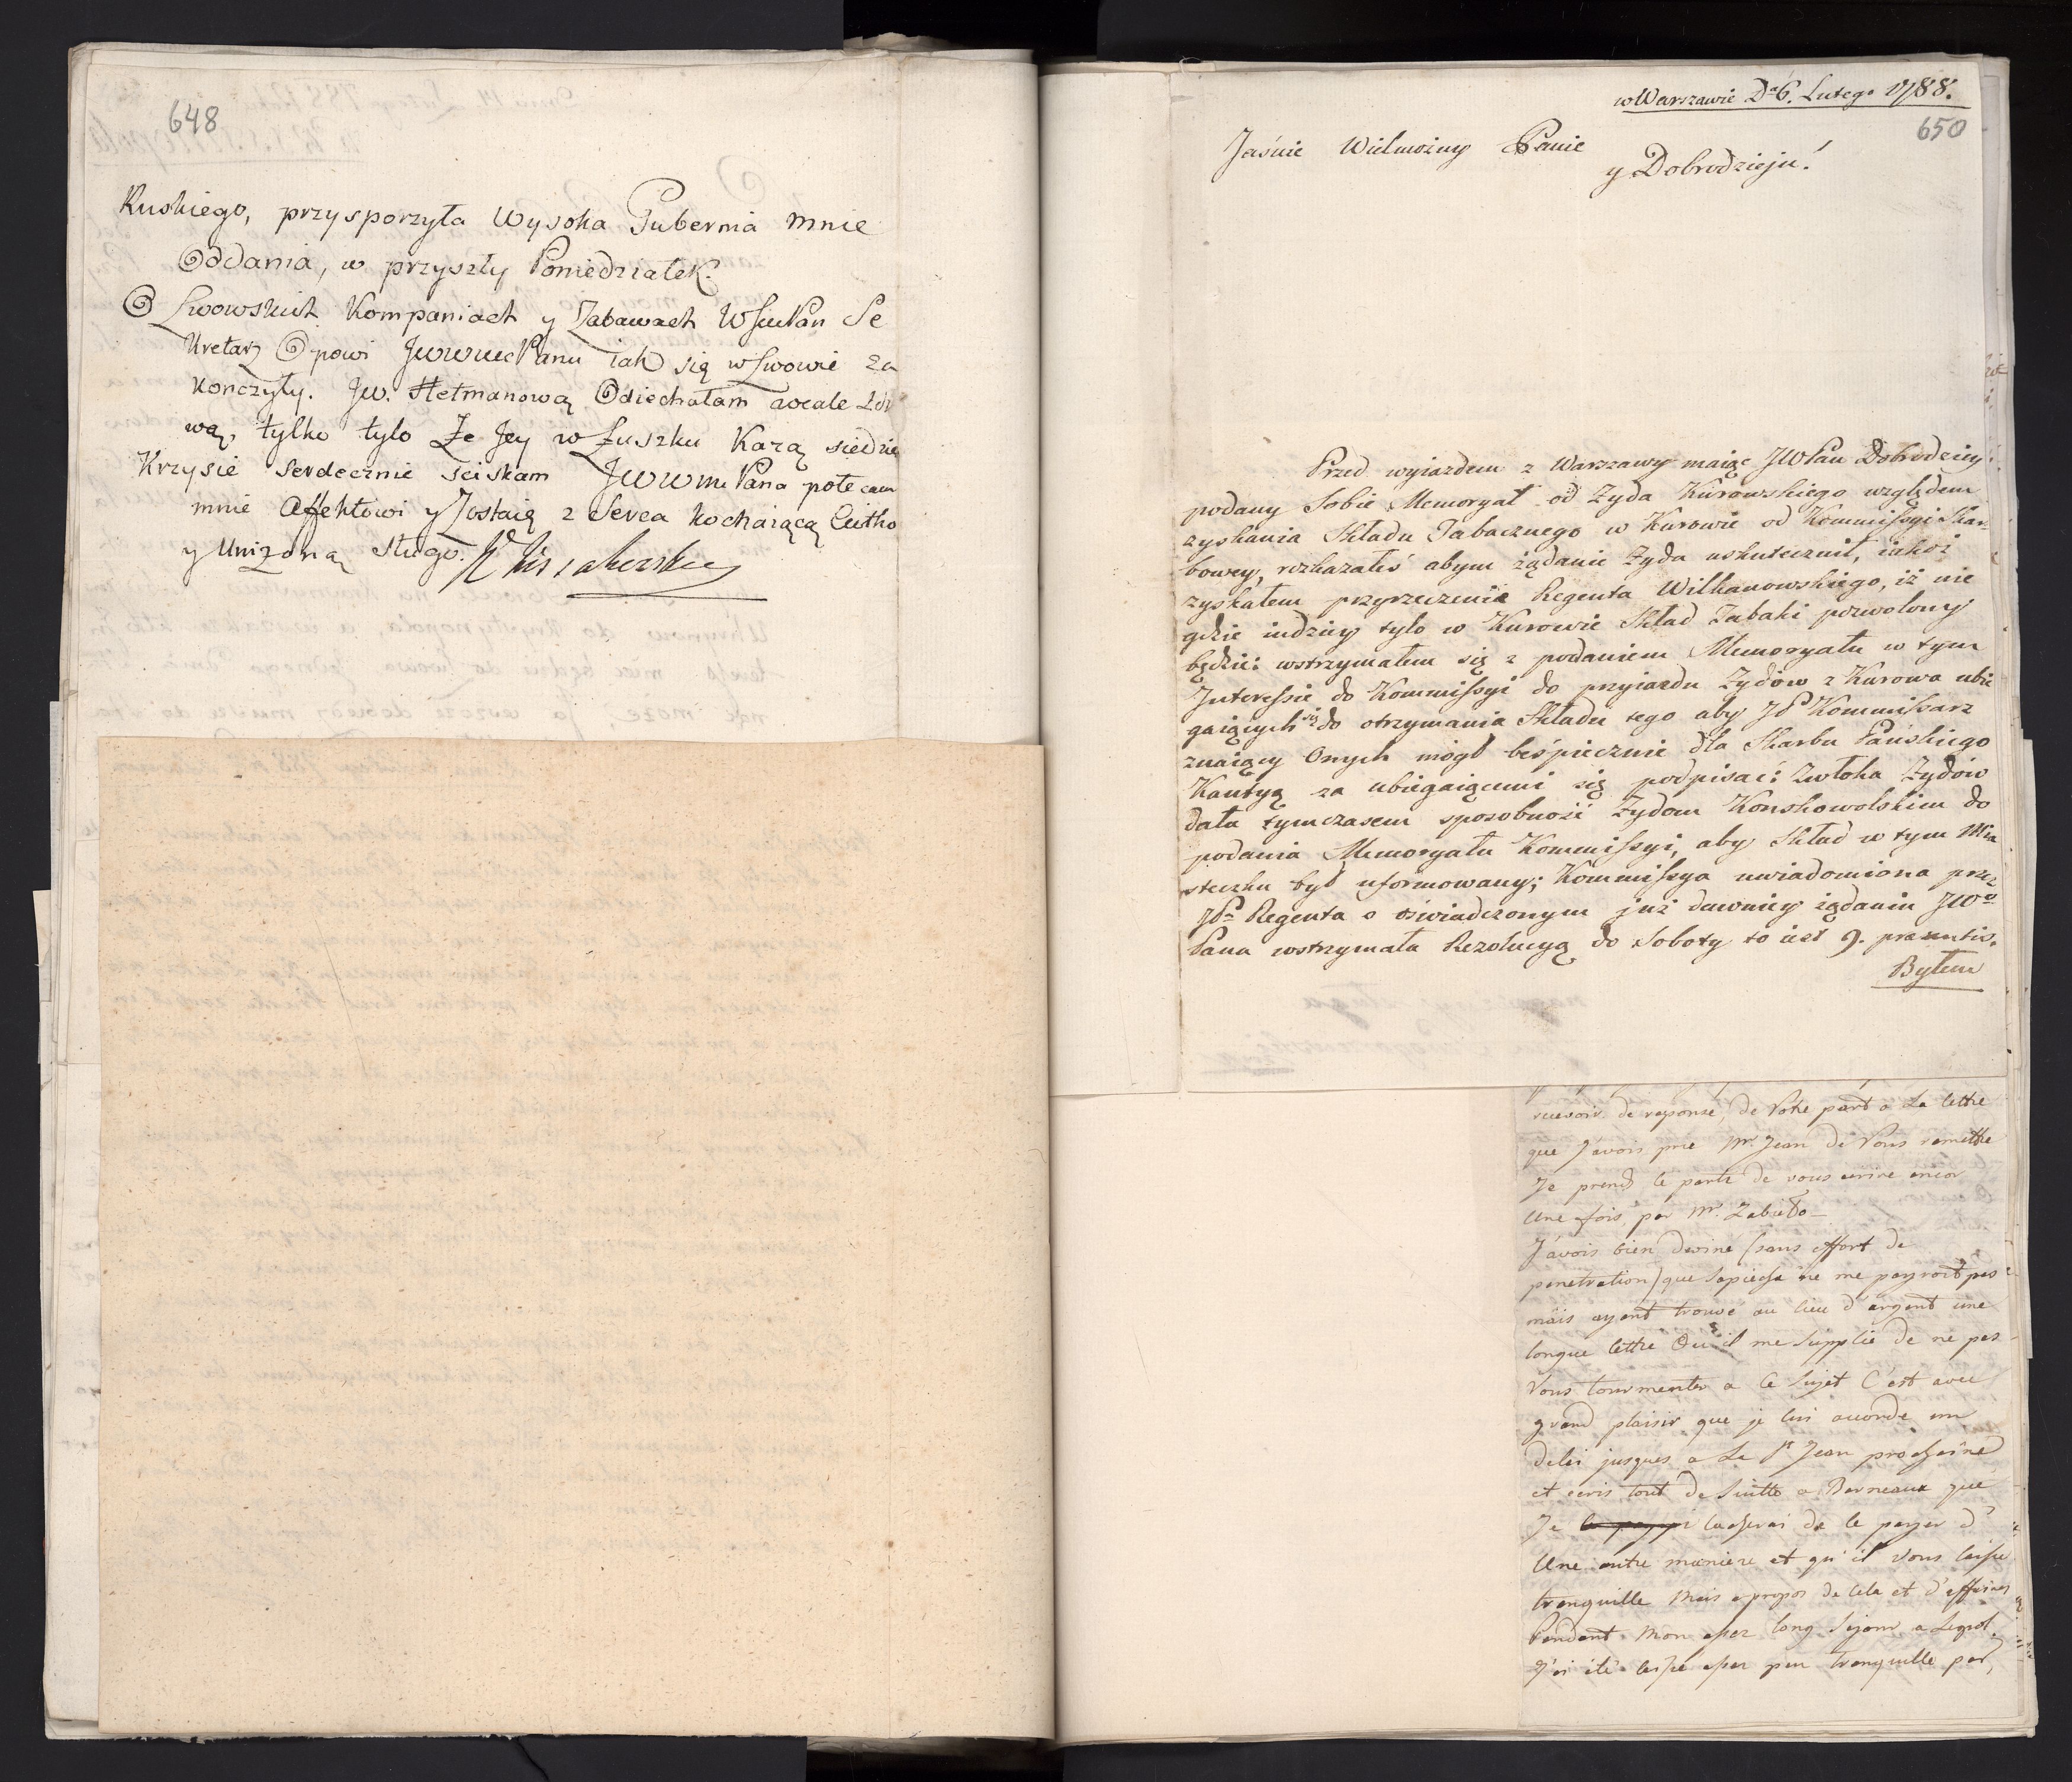 648
Ruskiego, przysporzyła Wysoka Gubernia mnie
Oddania, w przyszły Poniedziałek.
O Lwowskich Kompaniach y Zabawach WJmPan Se
kretarz Opowi JWWmcPanu iak się w Lwowie za
kończyły. Jw. Hetmanową Odiechałam wcale zdr
wą, tylko tylo Ze Jey w Łuszku Kazą siedzie
Krzysie Serdecznie sciskam JWWm Pana polecam
mnie Affektowi y Zostaię z Serca kochaiącą Ciotką
y Unizoną sługą.
w Warszawie Da 6. Lutego 1788.
650
Jaśnie Wielmożny Panie
y Dobrodzieju!
Przed wyiazdem z Warszawy maiąc JWPan Dobrodziey
podany Sobie Memoryał od Zyda Kurowskiego względem
zyskania Składu Tabacznego w Kurowie od Kommissyi Skar
bowey, rozkazałeś abym żądanie Zyda uskutecznił, iakoż
zyskałem przyrzeczenie Regenta Wilkanowskiego, iż nie
gdzie indziey tylo w Kurowie Skład Tabaki pozwolony
będzie: wstrzymałem się z podaniem Memoryału w tym
Interessie do Kommissyi do przyiazdu Zydów z Kurowa ubie
gaiących się do otrzymania Składu tego aby JP Kommissarz
znaiący Onych mógł beśpiecznie dla Skarbu Pańskiego
Kaucyą za ubiegaiącemi się podpisać: Zwłoka Zydów
dała tymczasem sposobność Zydom Konskowolskim do
podania Memoryału Kommissyi, aby Skład w tym Mia
steczku był uformowany; Kommissya uwiadomiona przez
JPa Regenta o oświadczonym już dawniey żądaniu JWo
Pana wstrzymała Rezolucyą do Soboty to iest 9. praesentis.
Byłem
recevoir de reponse, de Votre part a La lettre
que J'avois prie Mr. Jean de Vous remettre
Je prends le parti de vous ecrire encor
Une fois par Mr. Zabiełło
J'avois bien deviné (sans effort de
penetration) que Sapieha ne me payroit pas
mais ayant trouvé au lieu d'argent une
longue lettre Ou il me Supplie de ne pas
Vous tourmenter a Ce Sujet C'est avec
grand plaisir que je lui accorde un
delai jusques a La St Jean prochaine
et ecris tout De Suitte a Barneaux que
Je tacherai de le payer d'
Une autre maniere et qu'il Vous laisse
tranquille Mais apropos de Cela et d'affaires
Pendant Mon assez long Sejour a Leopol
J'ai été laissé assez peu tranquille par